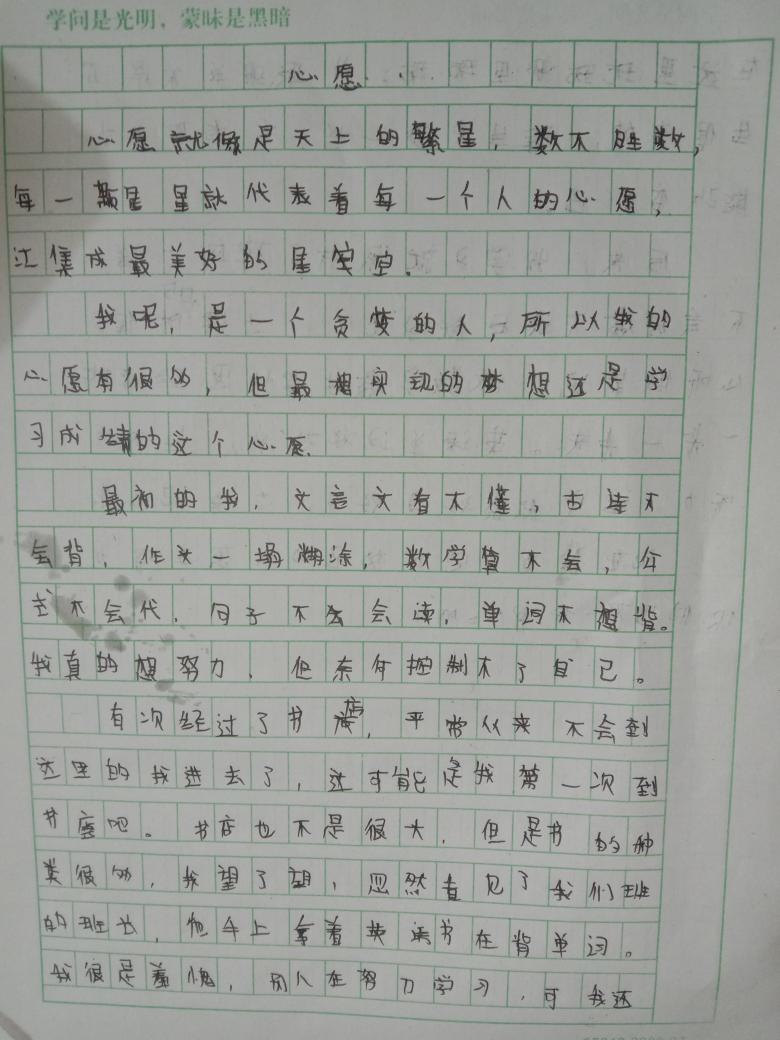 学问是光明，蒙昧是黑暗
心愿
心愿就像是天上的繁星，数不胜数，
每一颗星星就代表着每一个人的心愿，
汇集成最美好的星空。
我呢，是一个贪婪的人，所以我的
心愿有很多，但最想实现的梦想还是学
习成绩的这个心愿。
最初的我，文言文看不懂，古诗不
会背，作文一塌糊涂，数学算不会，公
式不会代，句子不会读，单词不想背。
我真的想努力，但奈何控制不了自己。
有次经过了书店，平常从来不会到
这里的我进去了，这可能是我第一次到
书店吧。书店也不是很大，但是书的种
类很多，我望了望，忽然看见了我们班
的班长，他手上拿着英语书在背单词。
我很是羞愧，别人在努力学习，可我还